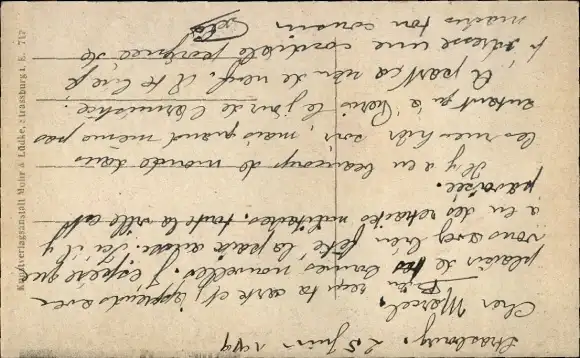 Strasbourg. 25 Juin 1919
Cher Marcel,
Bien reçu ta carte et j'apprends avec
plaisir de tes bonnes nouvelles. J'espère que
vous avez bien fêté la paix aussi. Ici il y
a eu des retraites militaires, toute la ville est
pavoisée.
Il y a eu beaucoup de monde dans
les rues hier soir, mais quand même pas
autant qu'à Paris le jour de l'armistice.
A part ça rien de neuf. Il te
adresse une cordiale poignée de
mains ton cousin
Kunstverlagsanstalt Mohr & Lüdke, Strassburg i. E. 717